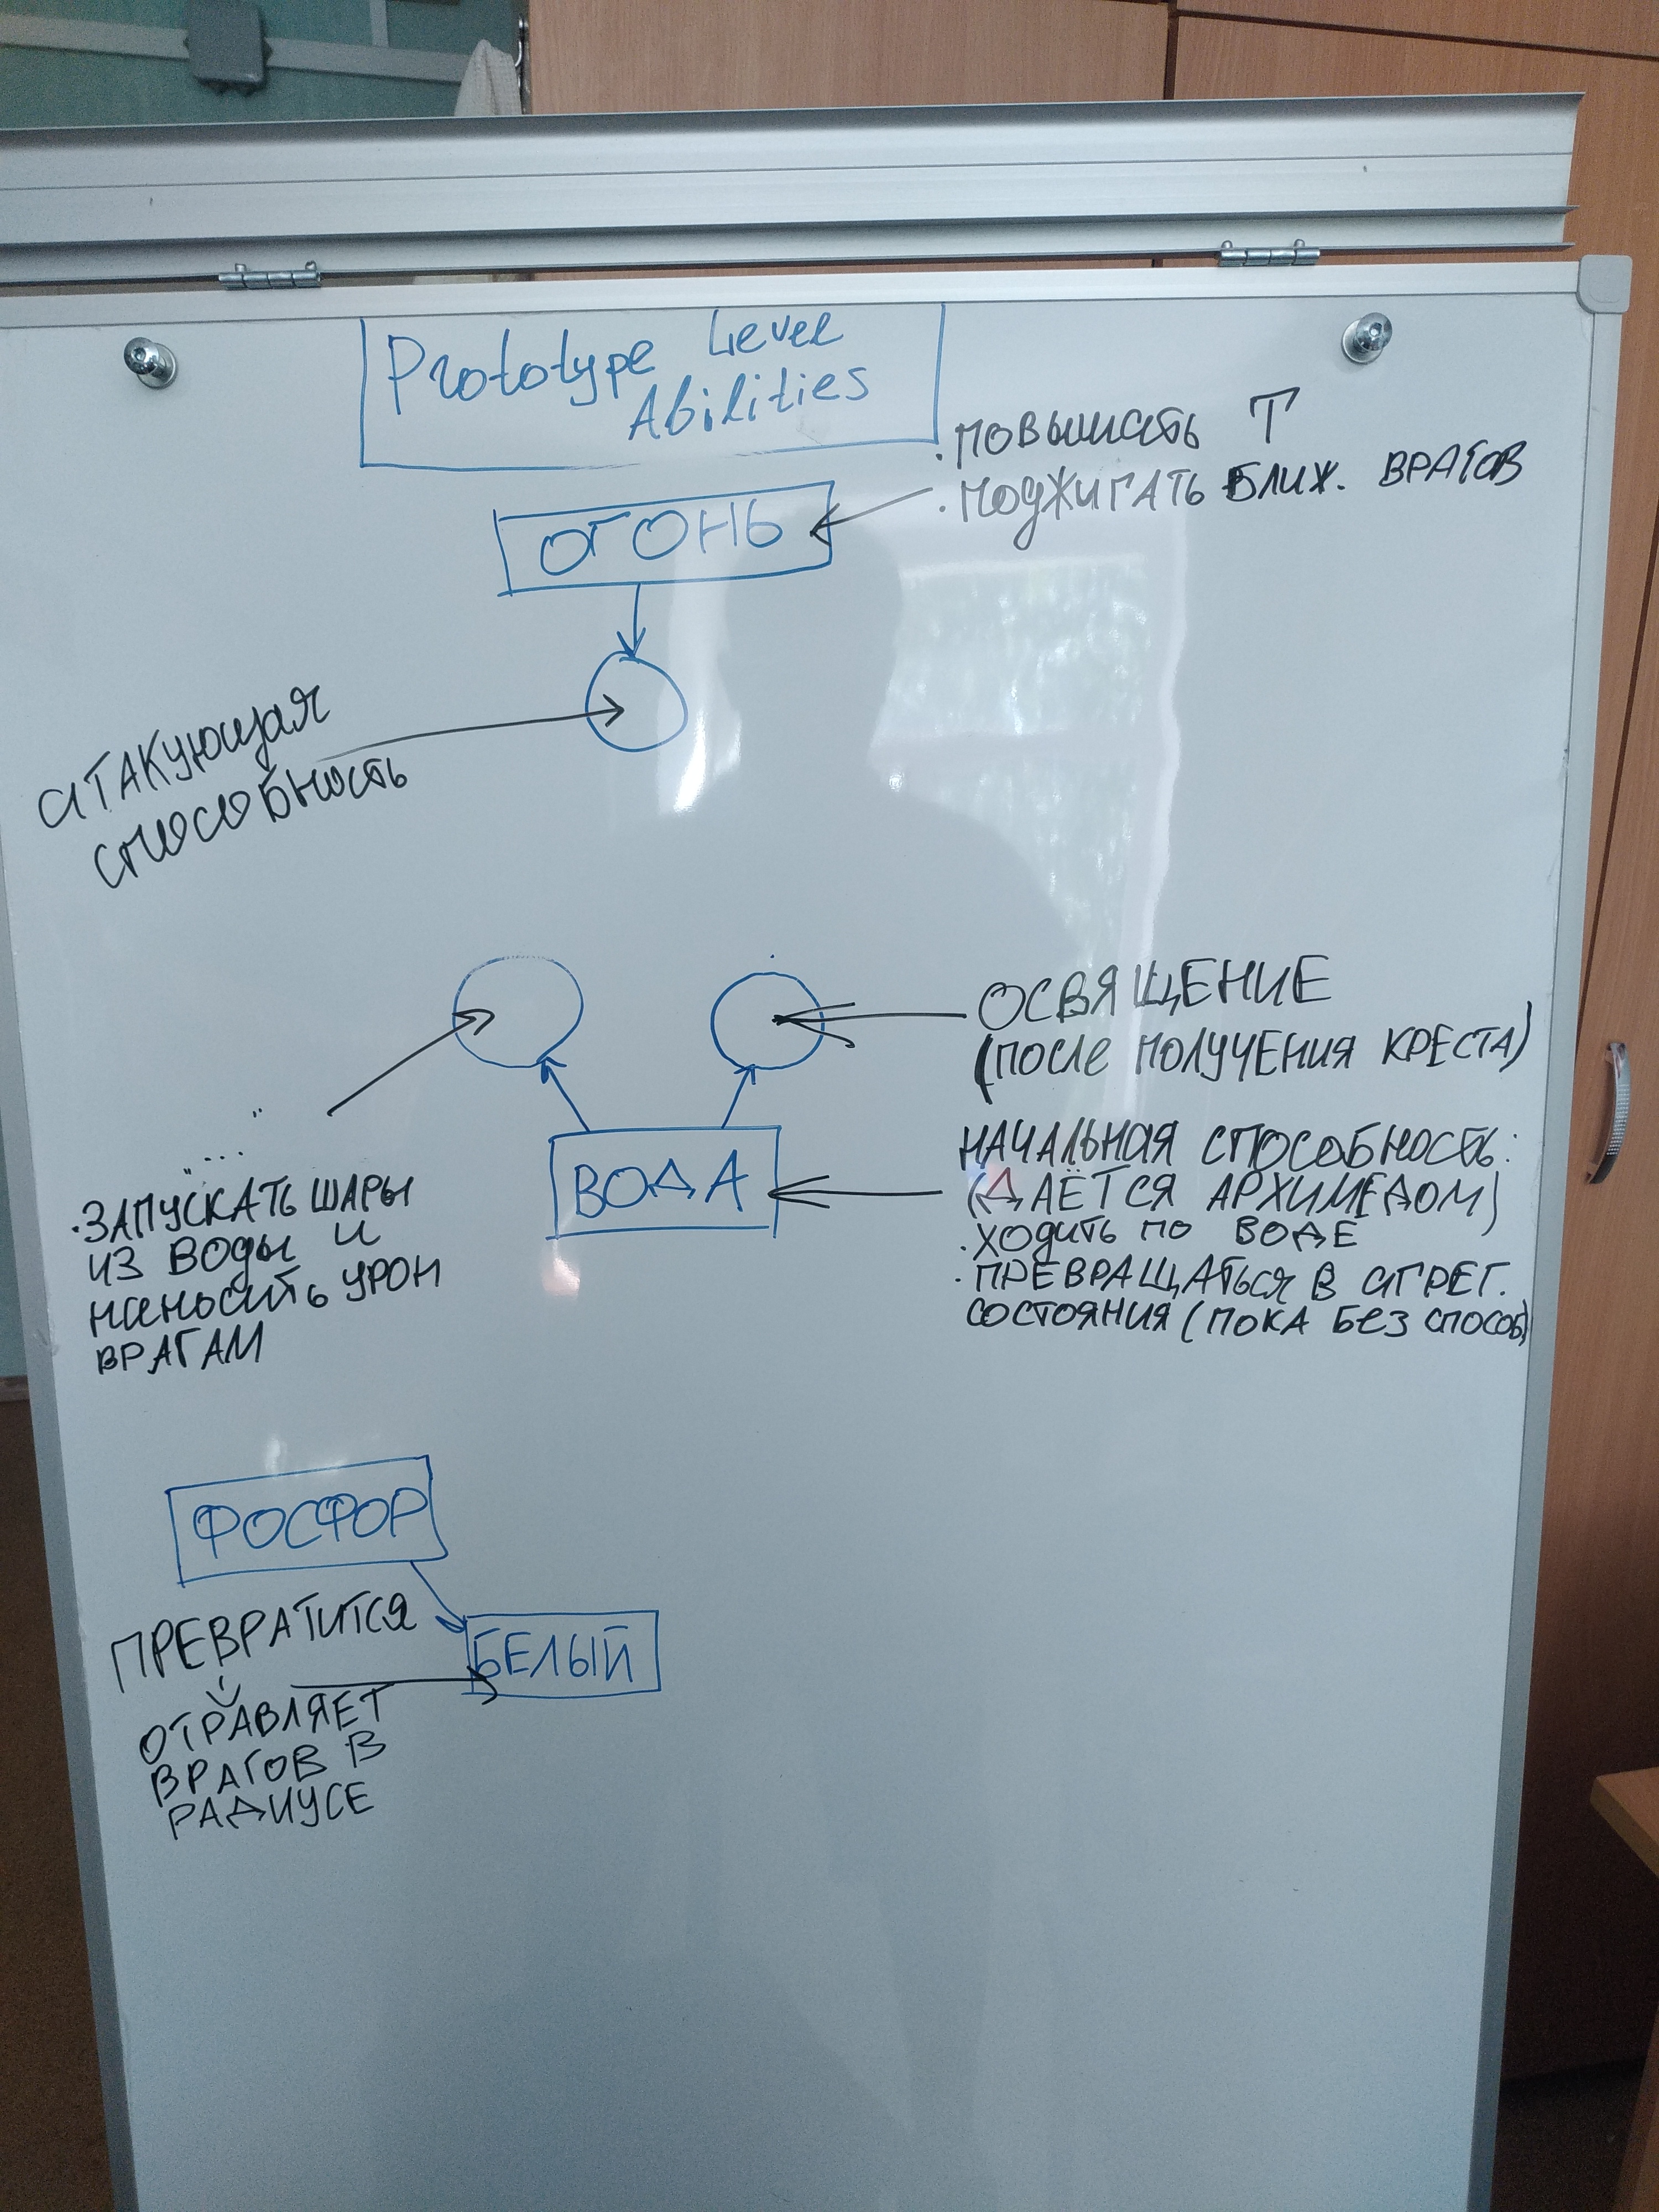 Prototype Level
Abilities
• повышать T
• поджигать ближ. врагов
ОГОНЬ
атакующая
способность
ОСВЯЩЕНИЕ
(после получения креста)
" .... "
• ЗАПУСКАТЬ ШАРЫ
ИЗ ВОДЫ И
наносить урон
ВРАГАМ
ВОДА
НАЧАЛЬНАЯ СПОСОБНОСТЬ:
(ДАЁТСЯ АРХИМЕДОМ)
• ХОДИТЬ ПО ВОДЕ
• ПРЕВРАЩАТЬСЯ В АГРЕГ.
СОСТОЯНИЯ (ПОКА БЕЗ СПОСОБ)
ФОСФОР
ПРЕВРАТИТСЯ
БЕЛЫЙ
ОТРАВЛЯЕТ
ВРАГОВ В
РАДИУСЕ